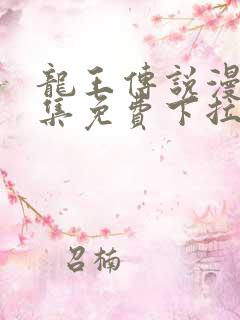 龍王傳說漫
集免費下拉
召楠